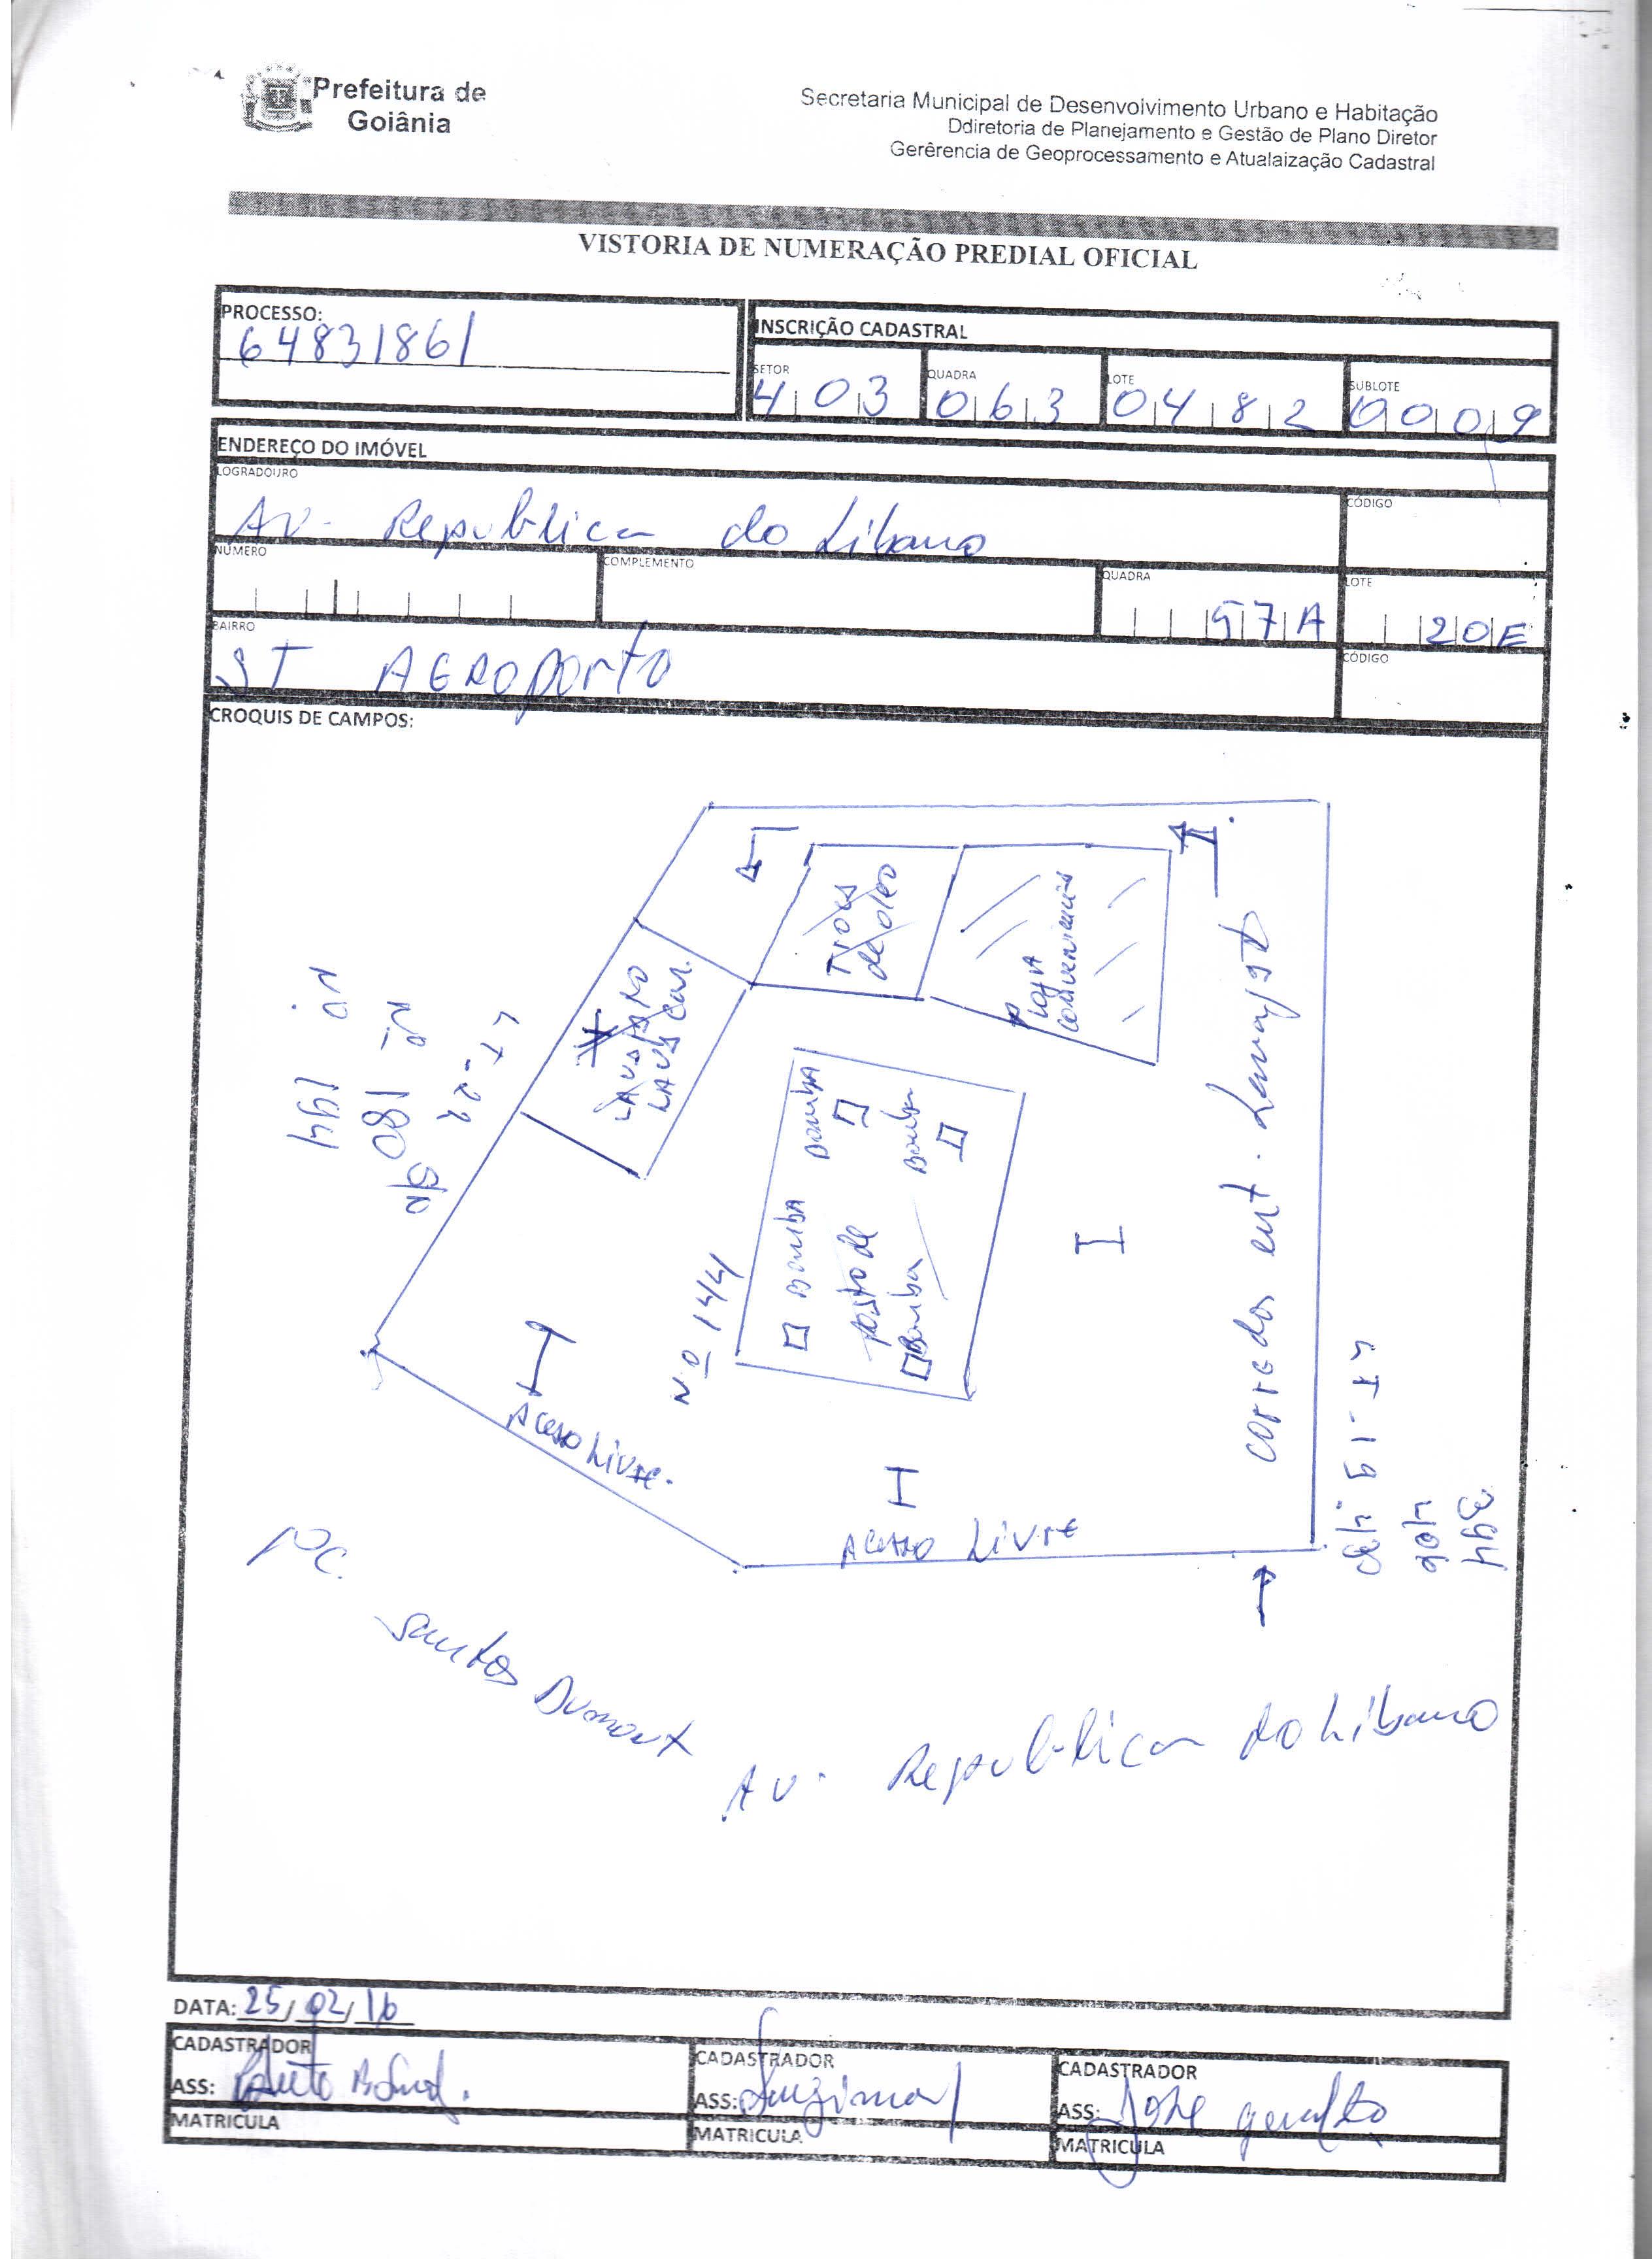 Prefeitura de
Goiânia
Secretaria Municipal de Desenvolvimento Urbano e Habitação
Ddiretoria de Planejamento e Gestão de Plano Diretor
Gerêrencia de Geoprocessamento e Atualaização Cadastral
VISTORIA DE NUMERAÇÃO PREDIAL OFICIAL
PROCESSO:
64831861
INSCRIÇÃO CADASTRAL
SETOR QUADRA LOTE SUBLOTE
403 063 0482 0009
ENDEREÇO DO IMÓVEL
LOGRADOURO CÓDIGO
Av. Republica do Libano
NÚMERO COMPLEMENTO QUADRA LOTE
57A 20E
BAIRRO CÓDIGO
ST AEROporto
CROQUIS DE CAMPOS:
de oleo
Loja
conveniencias
LAVA
Nº 194
Nº 180
LT-22
S/N
Bomba
Bomba
Bomba
posto de
Bomba
Nº 144
corredor ent.
Acesso Livre.
Acesso Livre
LT-19
406
394
Pc.
Santos Dumont
Av. Republica do Libano
DATA: 25/02/16
CADASTRADOR CADASTRADOR CADASTRADOR
ASS: ASS: Luzimar ASS: Jose geraldo
MATRICULA MATRICULA MATRICULA